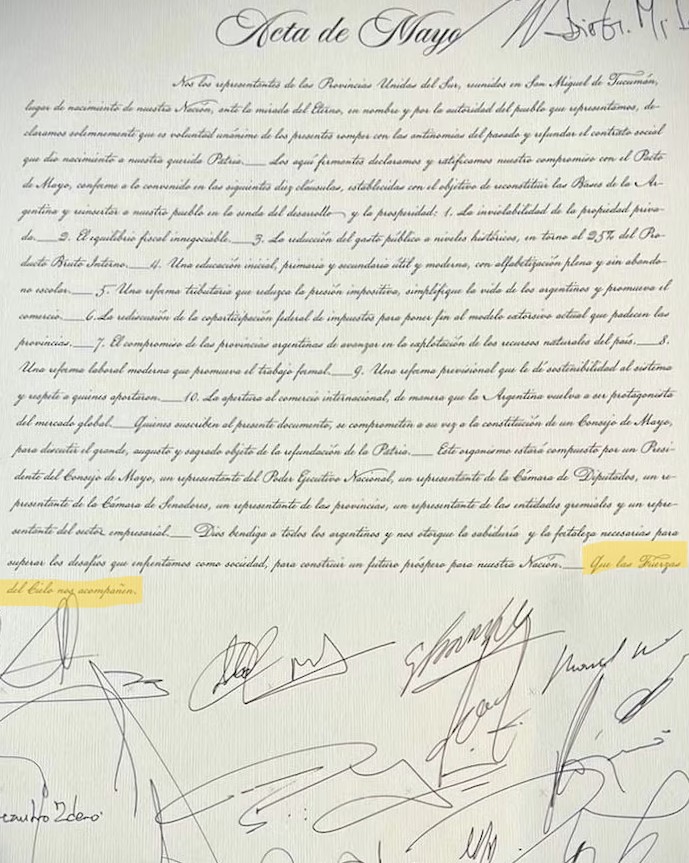 Acta de Mayo
Nos los representantes de las Provincias Unidas del Sur, reunidos en San Miguel de Tucumán,
lugar de nacimiento de nuestra Nación, ante la mirada del Eterno, en nombre y por la autoridad del pueblo que representamos, de-
claramos solemnemente que es voluntad unánime de los presentes romper con las antinomias del pasado y refundar el contrato social
que dio nacimiento a nuestra querida Patria.___ Los aquí firmantes declaramos y ratificamos nuestro compromiso con el Pacto
de Mayo, conforme a lo convenido en las siguientes diez cláusulas, establecidas con el objetivo de reconstituir las Bases de la Ar-
gentina y reinsertar a nuestro pueblo en la senda del desarrollo y la prosperidad: 1. La inviolabilidad de la propiedad priva-
da.___2. El equilibrio fiscal innegociable.___3. La reducción del gasto público a niveles históricos, en torno al 25% del Pro-
ducto Bruto Interno.___4. Una educación inicial, primaria y secundaria útil y moderna, con alfabetización plena y sin abando-
no escolar.___5. Una reforma tributaria que reduzca la presión impositiva, simplifique la vida de los argentinos y promueva el
comercio.___6. La rediscusión de la coparticipación federal de impuestos para poner fin al modelo extorsivo actual que padecen las
provincias.___7. El compromiso de las provincias argentinas de avanzar en la explotación de los recursos naturales del país.___8.
Una reforma laboral moderna que promueva el trabajo formal.___9. Una reforma previsional que le dé sostenibilidad al sistema
y respete a quienes aportaron.___10. La apertura al comercio internacional, de manera que la Argentina vuelva a ser protagonista
del mercado global.___Quienes suscriben al presente documento, se comprometen a su vez a la constitución de un Consejo de Mayo,
para discutir el grande, augusto y sagrado objeto de la refundación de la Patria.___ Este organismo estará compuesto por un Presi-
dente del Consejo de Mayo, un representante del Poder Ejecutivo Nacional, un representante de la Cámara de Diputados, un re-
presentante de la Cámara de Senadores, un representante de las provincias, un representante de las entidades gremiales y un repre-
sentante del sector empresarial.___ Dios bendiga a todos los argentinos y nos otorgue la sabiduría y la fortaleza necesarias para
superar los desafíos que enfrentamos como sociedad, para construir un futuro próspero para nuestra Nación.___ Que las Fuerzas
del Cielo nos acompañen.